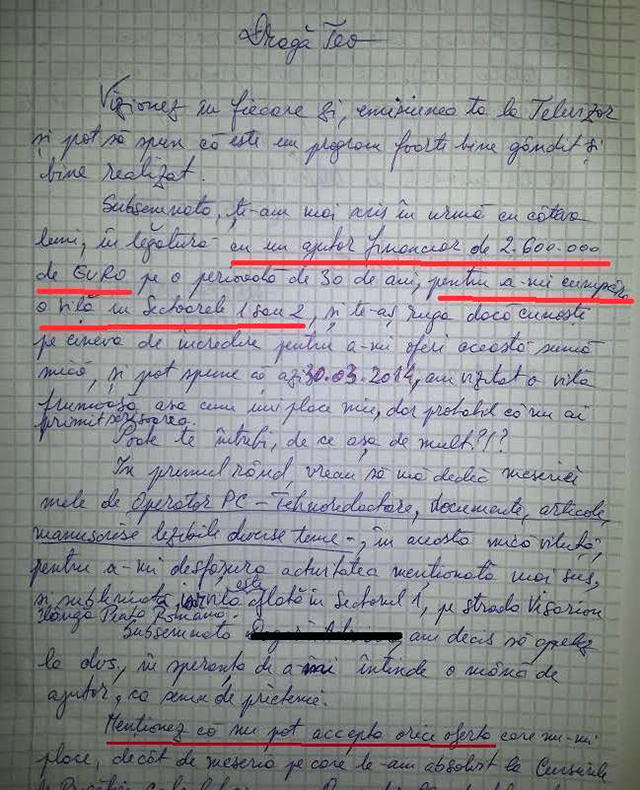 Dragă Teo
Vizionez în fiecare zi, emisiunea ta la Televizor
și pot să spun că este un program foarte bine gândit și
bine realizat.
Subsemnata, ți-am mai scris în urmă cu câteva
luni, în legătură cu un ajutor financiar de 2.600.000
de EURO pe o perioadă de 30 de ani, pentru a-mi cumpăra
o vilă în Sectoarele 1 sau 2, și te-aș ruga dacă cunoști
pe cineva de încredere pentru a-mi oferi această sumă
mică, și pot spune că azi 30.03.2014, am vizitat o vilă
frumoasă așa cum îmi place mie, dar probabil că nu ai
primit scrisoarea.
Poate te întrebi, de ce așa de mult?!?
În primul rând, vreau să mă dedic meseriei
mele de Operator PC - Tehnoredactare, documente, articole,
manuscrise lizibile diverse teme -, în această mică viluță,
pentru a-mi desfășura activitatea menționată mai sus,
și subliniată, vila este aflată în Sectorul 1, pe strada Visarion
lângă Piața Romană.
Subsemnata am decis să apelez
la dvs., în speranța de a-mi întinde o mână de
ajutor, ca semn de prietenie.
Menționez că nu pot accepta orice ofertă care nu-mi
place, decât de meseria pe care le-am absolvit la Cursurile